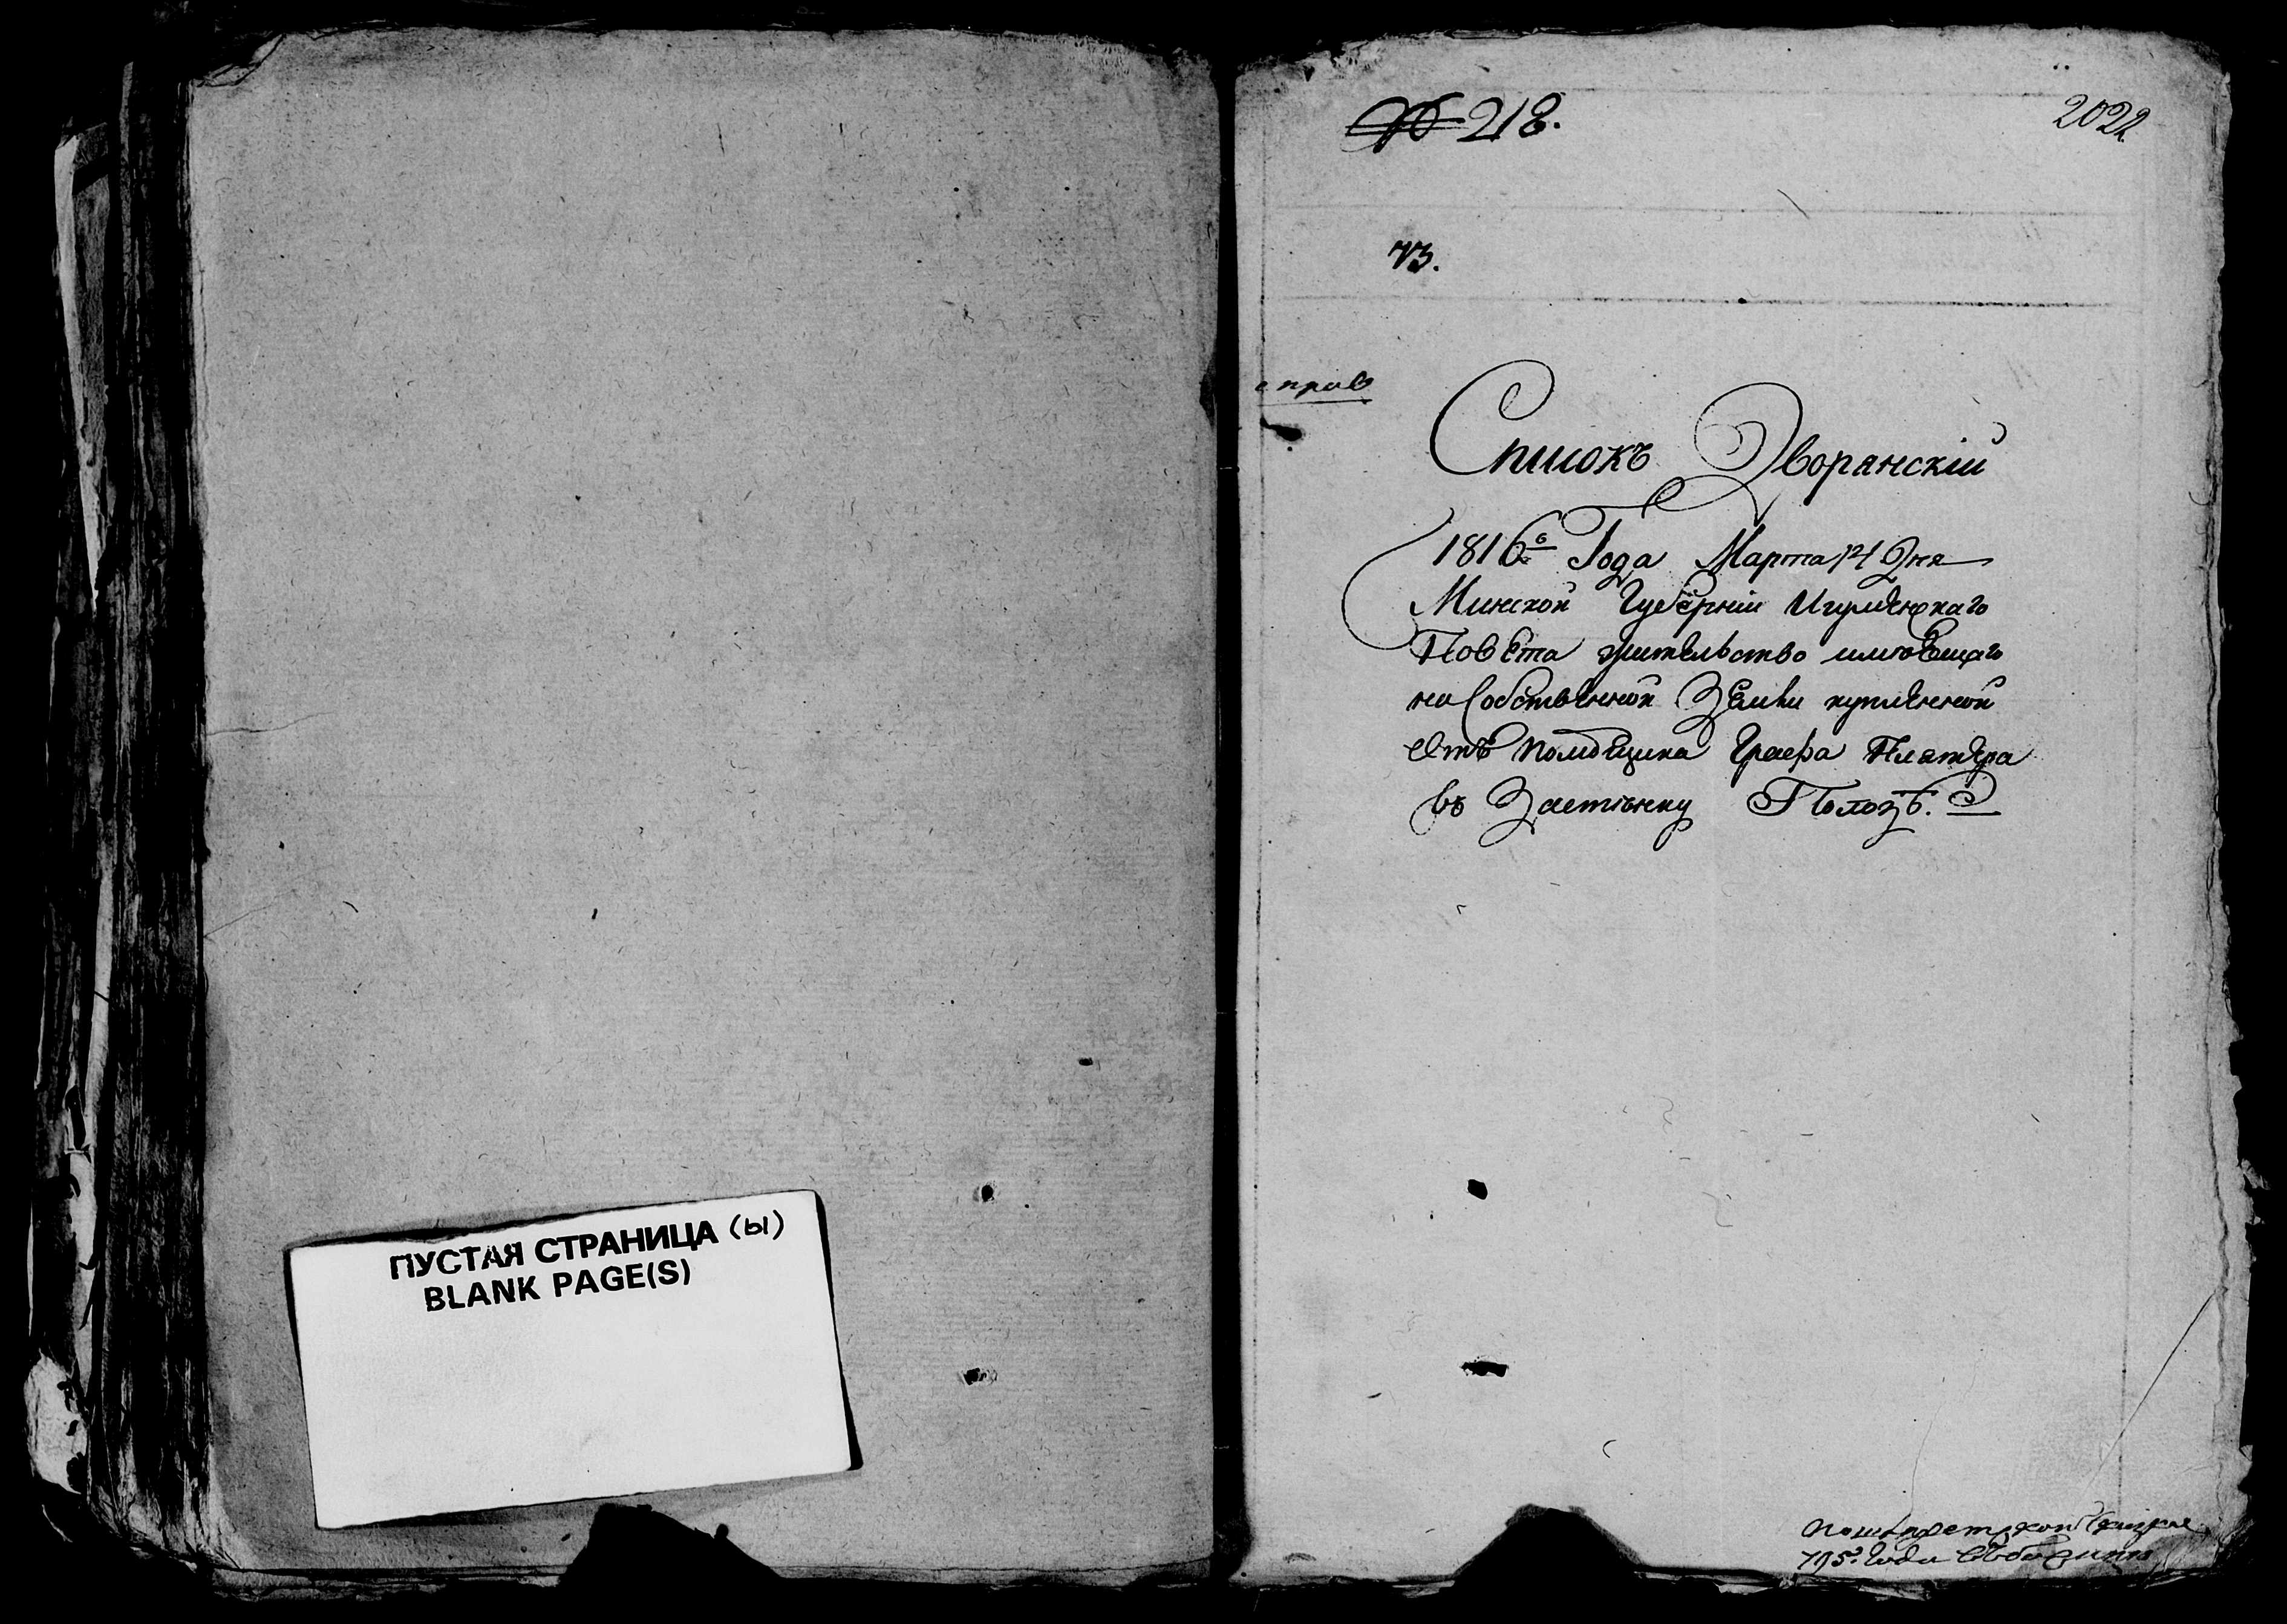 ПУСТАЯ СТРАНИЦА (ы)
BLANK PAGE(S)
№ 218.
2022
73.
справ
Списокъ Дворянскій
1816го Года Марта 14 Дня
Минской Губерніи Игуменскаго
Повѣта жительство имѣющаго
на Собственной Земли купленной
Отъ помѣщика Графа Плятера
въ Застѣнку Полозъ.
795 года